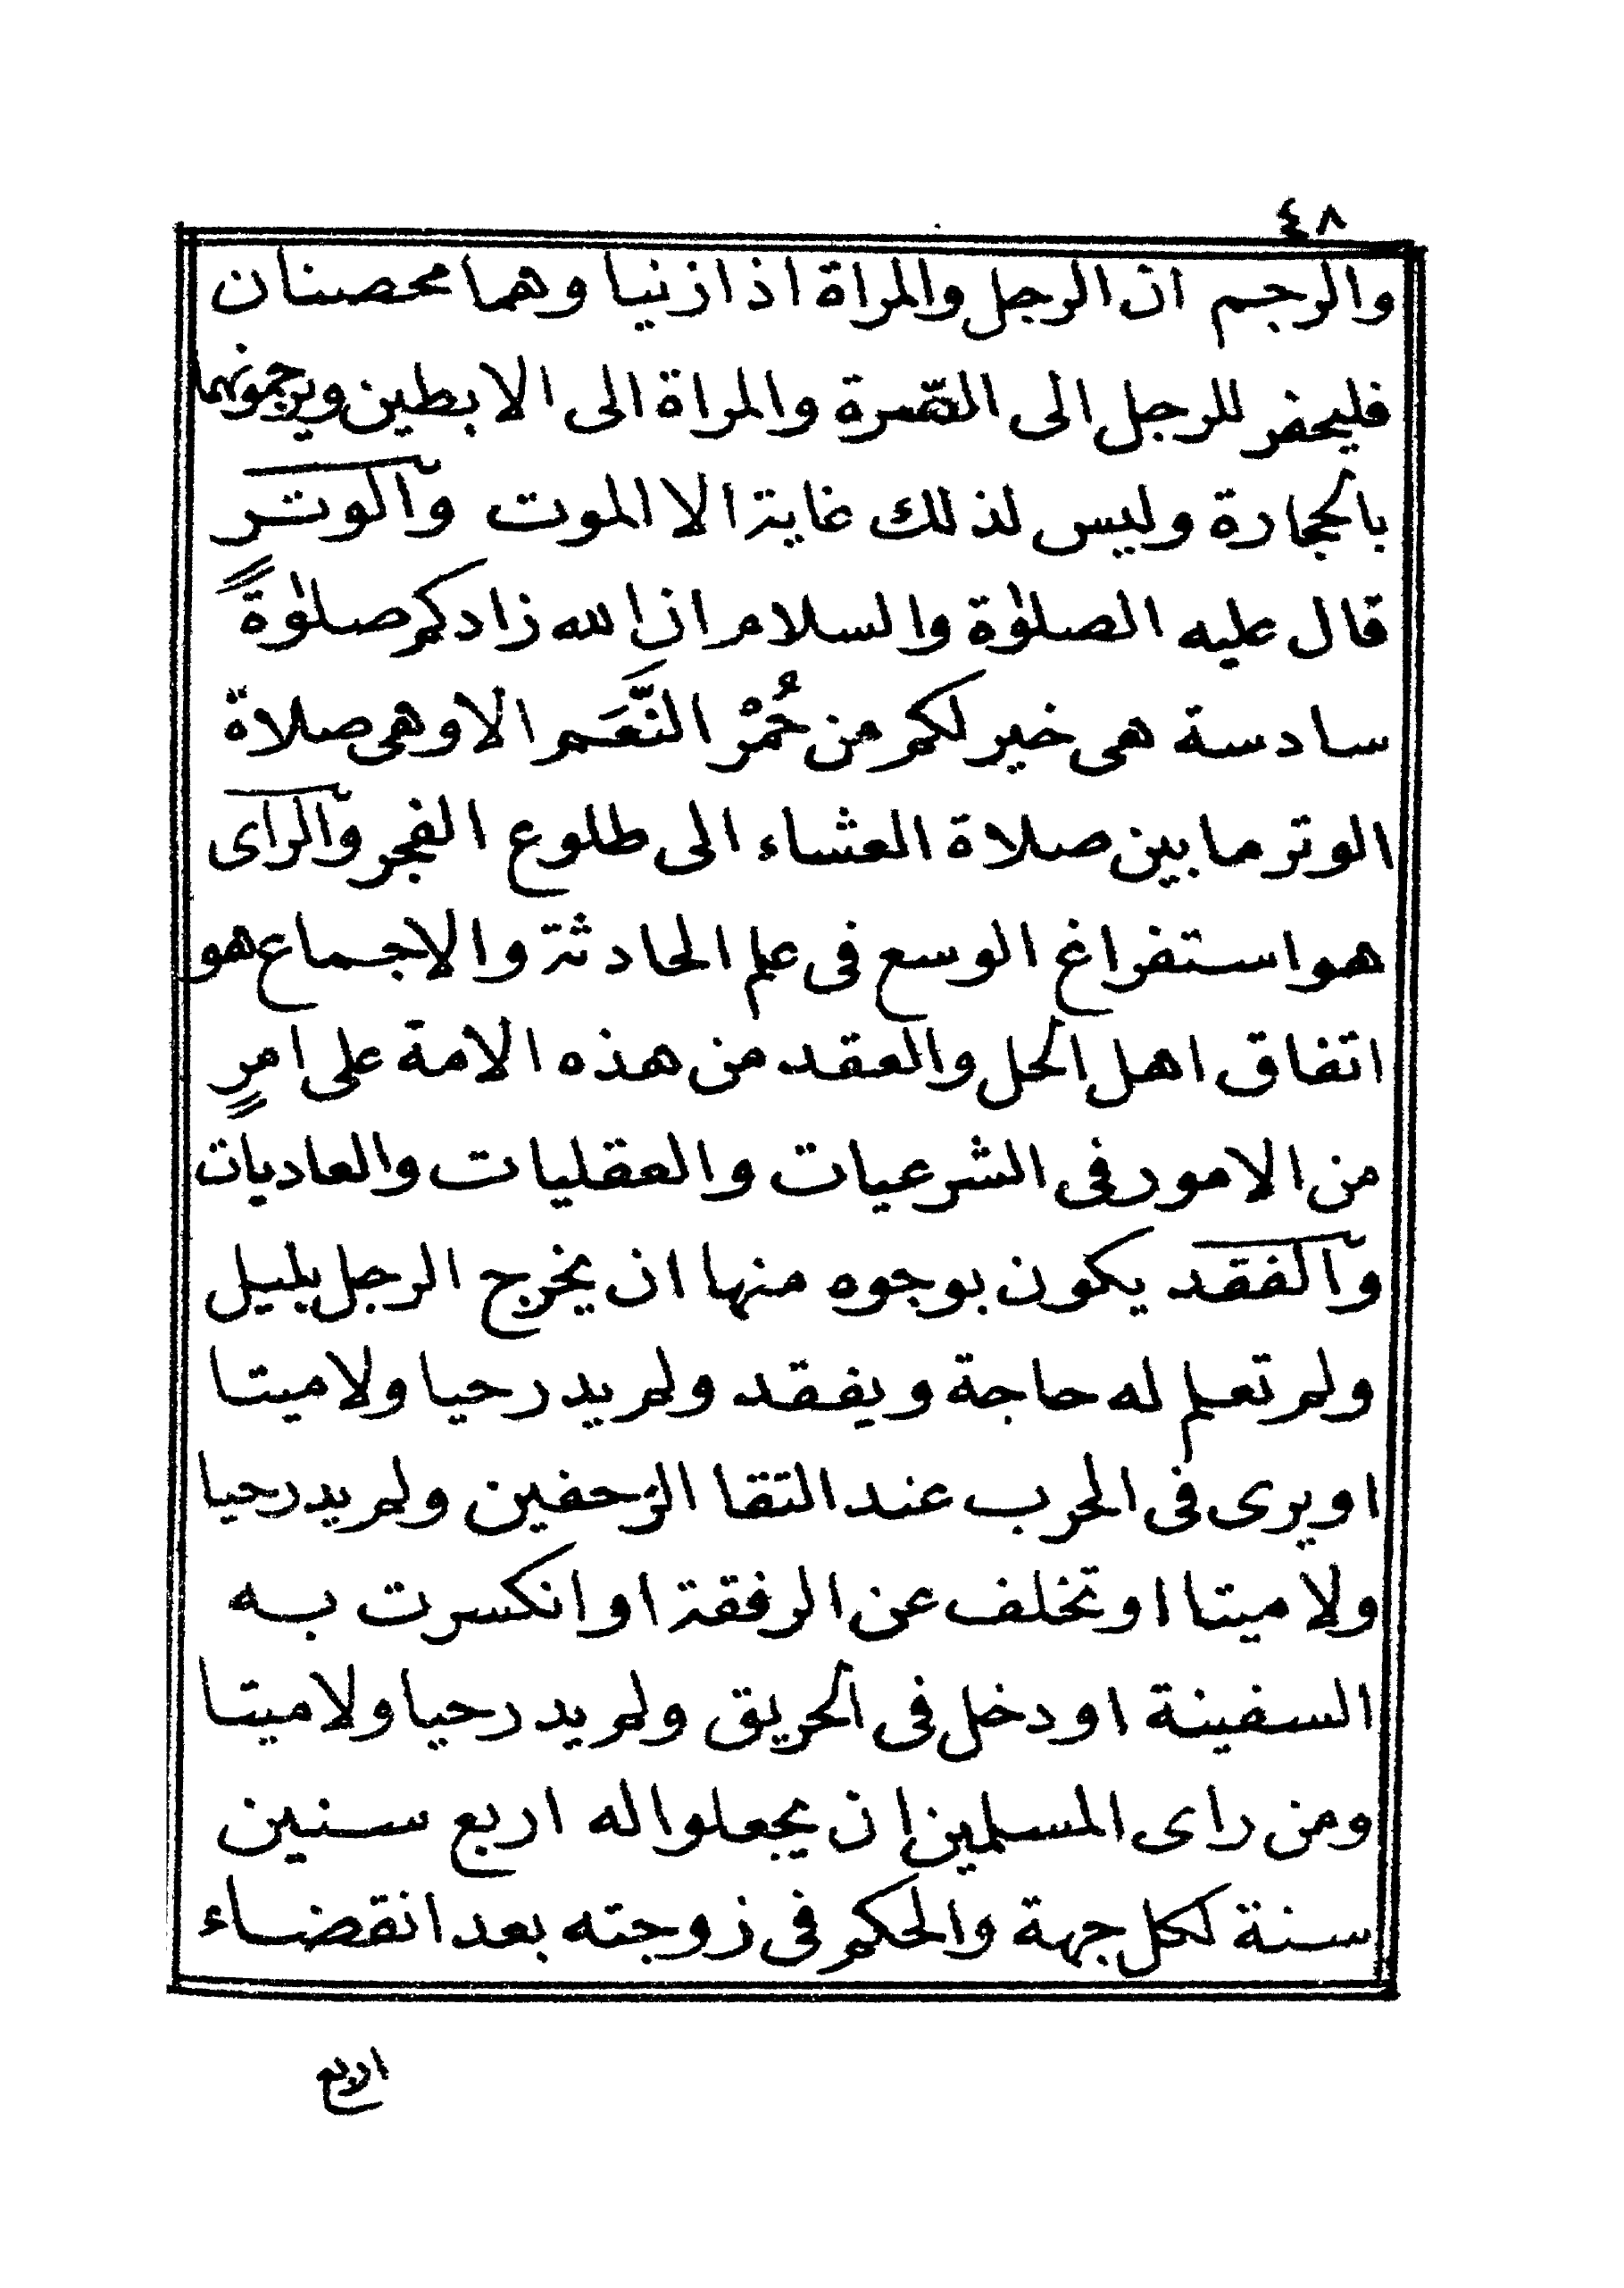 ٤٨
والرجم ان الرجل والمراة اذا زنيا وهما محصنان
فليحفر للرجل الى السرة والمراة الى الابطين ويرجمونهما
بالحجارة وليس لذلك غاية الا الموت والوتر
قال عليه الصلوٰة والسلام ان الله زادكم صلوٰةً
سادسة هى خير لكم من حُمْر النَّعَم الا وهى صلاة
الوتر ما بين صلاة العشاء الى طلوع الفجر والراى
هو استفراغ الوسع فى علم الحادثة والاجماع هو
اتفاق اهل الحل والعقد من هذه الامة على امرٍ
من الامور فى الشرعيات والعقليات والعاديات
والفقد يكون بوجوه منها ان يخرج الرجل بليل
ولم تعلم له حاجة ويفقد ولم يدر حيا ولا ميتا
او يرى فى الحرب عند التقا الزحفين ولم يدر حيا
ولا ميتا او تخلف عن الرفقة او انكسرت به
السفينة او دخل فى الحريق ولم يدر حيا ولا ميتا
ومن راى المسلمين ان يجعلوا له اربع سنين
سنة لكل جهة والحكم فى زوجته بعد انقضاء
اربع